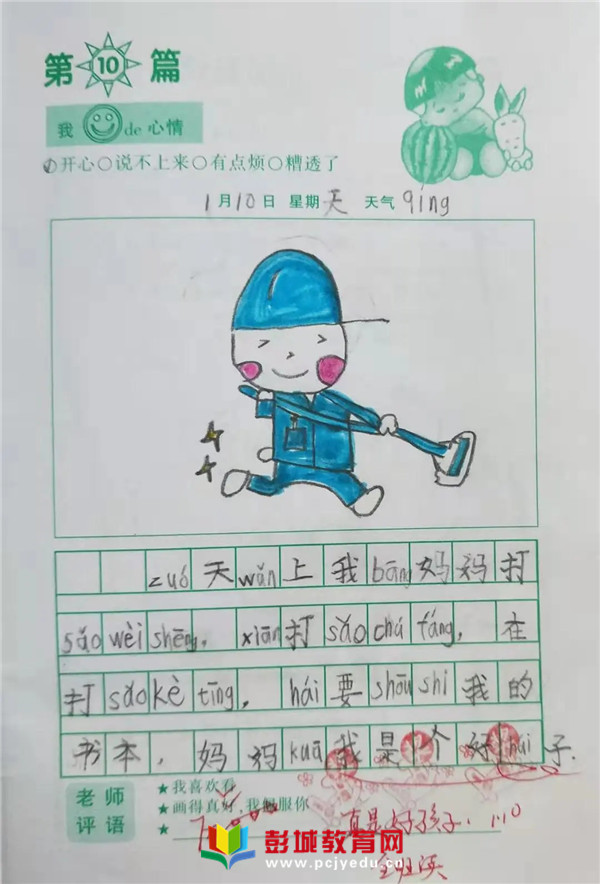 第 10 篇
我 de 心情
开心〇说不上来〇有点烦〇糟透了
1月10日 星期天 天气 qíng
zuó天wǎn上我bāng妈妈打
sǎo wèi shēng，xiān打sǎo chú fáng，在
打sǎo kè tīng，hái要shōu shi我的
书本，妈妈kuā我是个好hái子.
老师评语
★我喜欢看
★画得真好，我佩服你
★
真是好孩子. 1.10
彭城教育网
www.pcjyedu.cn